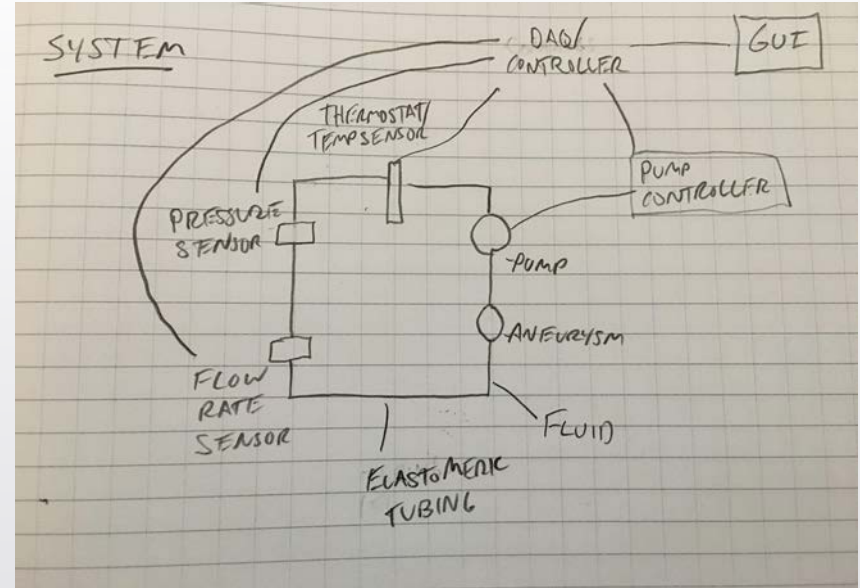 SYSTEM
DAQ/
CONTROLLER
GUI
THERMOSTAT/
TEMP SENSOR
PUMP
CONTROLLER
PRESSURE
SENSOR
PUMP
ANEURYSM
FLOW
RATE
SENSOR
FLUID
ELASTOMERIC
TUBING